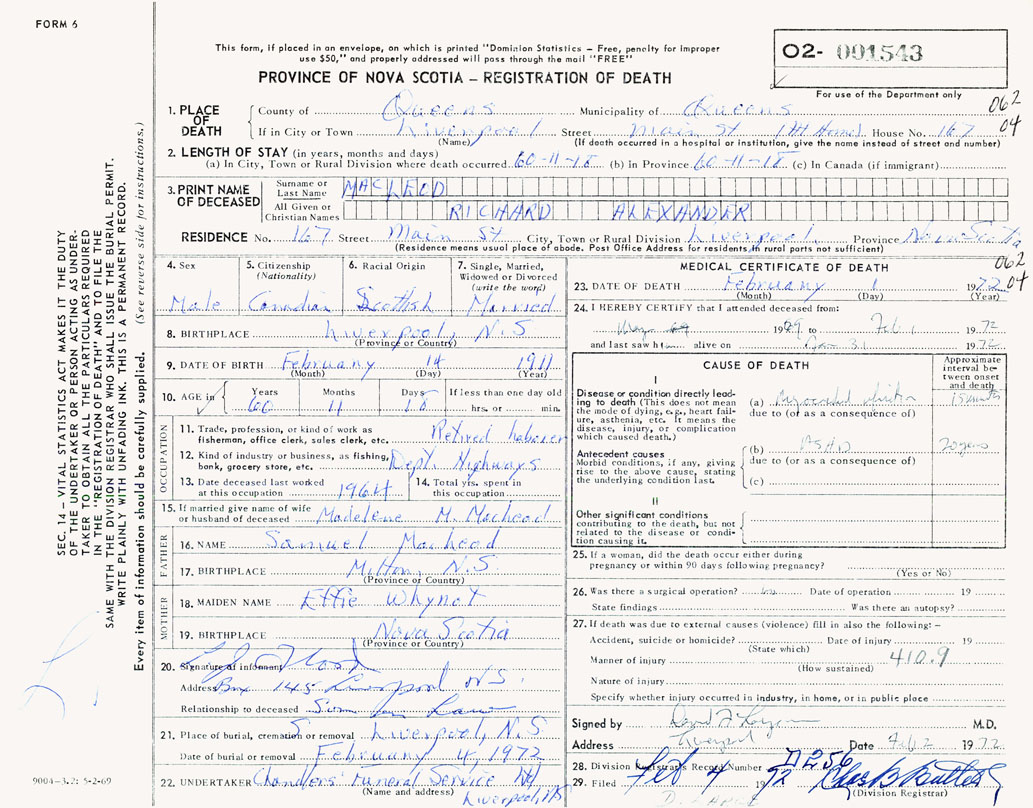 FORM 6
This form, if placed in an envelope, on which is printed "Dominion Statistics – Free, penalty for improper
use $50," and properly addressed will pass through the mail "FREE"
PROVINCE OF NOVA SCOTIA – REGISTRATION OF DEATH
02- 001543
For use of the Department only
062
04
1. PLACE OF DEATH
County of Queens Municipality of Queens
If in City or Town Liverpool Street Main St (At Home) House No. 167
(Name) (If death occurred in a hospital or institution, give the name instead of street and number)
2. LENGTH OF STAY (in years, months and days)
(a) In City, Town or Rural Division where death occurred 60-11-18 (b) in Province 60-11-18 (c) In Canada (if immigrant)
3. PRINT NAME OF DECEASED
Surname or Last Name MACLEOD
All Given or Christian Names RICHARD ALEXANDER
RESIDENCE No. 167 Street Main St City, Town or Rural Division Liverpool, Province Nova Scotia
(Residence means usual place of abode. Post Office Address for residents in rural parts not sufficient)
4. Sex Male
5. Citizenship (Nationality) Canadian
6. Racial Origin Scottish
7. Single, Married, Widowed or Divorced (write the word) Married
8. BIRTHPLACE Liverpool, N.S
(Province or Country)
9. DATE OF BIRTH February 14 1911
(Month) (Day) (Year)
10. AGE in Years 60 Months 11 Days 18 If less than one day old hrs. or min.
OCCUPATION
11. Trade, profession, or kind of work as fisherman, office clerk, sales clerk, etc. Retired laborer
12. Kind of industry or business, as fishing, bank, grocery store, etc. Dept. Highways
13. Date deceased last worked at this occupation 1964
14. Total yrs. spent in this occupation
15. If married give name of wife or husband of deceased Madelene M. Macleod
FATHER
16. NAME Samuel Macleod
17. BIRTHPLACE Milton, N.S.
(Province or Country)
MOTHER
18. MAIDEN NAME Effie Whynot
19. BIRTHPLACE Nova Scotia
(Province or Country)
20. Signature of informant
Address Box 145 Liverpool N.S.
Relationship to deceased Son in Law
21. Place of burial, cremation or removal Liverpool, N.S.
Date of burial or removal February 4, 1972
22. UNDERTAKER Chandlers' Funeral Service
(Name and address) Liverpool, NS
MEDICAL CERTIFICATE OF DEATH
062
04
23. DATE OF DEATH February 1 1972
(Month) (Day) (Year)
24. I HEREBY CERTIFY that I attended deceased from:
19 to Feb 1 1972
and last saw him alive on Jan 31 1972
CAUSE OF DEATH
Approximate interval between onset and death
I
Disease or condition directly leading to death (This does not mean the mode of dying, e.g., heart failure, asthenia, etc. It means the disease, injury, or complication which caused death.)
(a) Myocardial
due to (or as a consequence of)
Antecedent causes
Morbid conditions, if any, giving rise to the above cause, stating the underlying condition last.
(b) ASHD 20 years
due to (or as a consequence of)
(c)
II
Other significant conditions contributing to the death, but not related to the disease or condition causing it.
25. If a woman, did the death occur either during
pregnancy or within 90 days following pregnancy?
(Yes or No)
26. Was there a surgical operation? Date of operation 19
State findings Was there an autopsy?
27. If death was due to external causes (violence) fill in also the following: –
Accident, suicide or homicide? Date of injury 19
(State which)
Manner of injury 410.9
(How sustained)
Nature of injury
Specify whether injury occurred in industry, in home, or in public place
Signed by M.D.
Address Liverpool Date Feb 2 1972
28. Division Registrar's Record Number D256
29. Filed Feb 4 1972
(Division Registrar)
SEC. 14 – VITAL STATISTICS ACT MAKES IT THE DUTY
OF THE UNDERTAKER OR PERSON ACTING AS UNDERTAKER
TO OBTAIN ALL THE PARTICULARS REQUIRED
IN THE "REGISTRATION OF DEATH" AND TO FILE THE
SAME WITH THE DIVISION REGISTRAR WHO SHALL ISSUE THE BURIAL PERMIT.
WRITE PLAINLY WITH UNFADING INK. THIS IS A PERMANENT RECORD.
Every item of information should be carefully supplied. (See reverse side for instructions.)
9004-3.2: 5-2-69